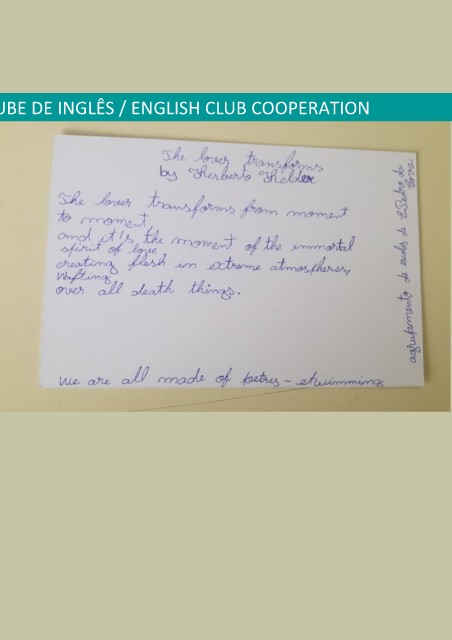 UBE DE INGLÊS / ENGLISH CLUB COOPERATION
The lover transforms
by Herberto Helder
The lover transforms from moment
to moment,
and it's, the moment of the immortal
spirit of love
creating flesh in extreme atmospheres,
Wafting
over all death things.
We are all made of
agrupamento de escolas de